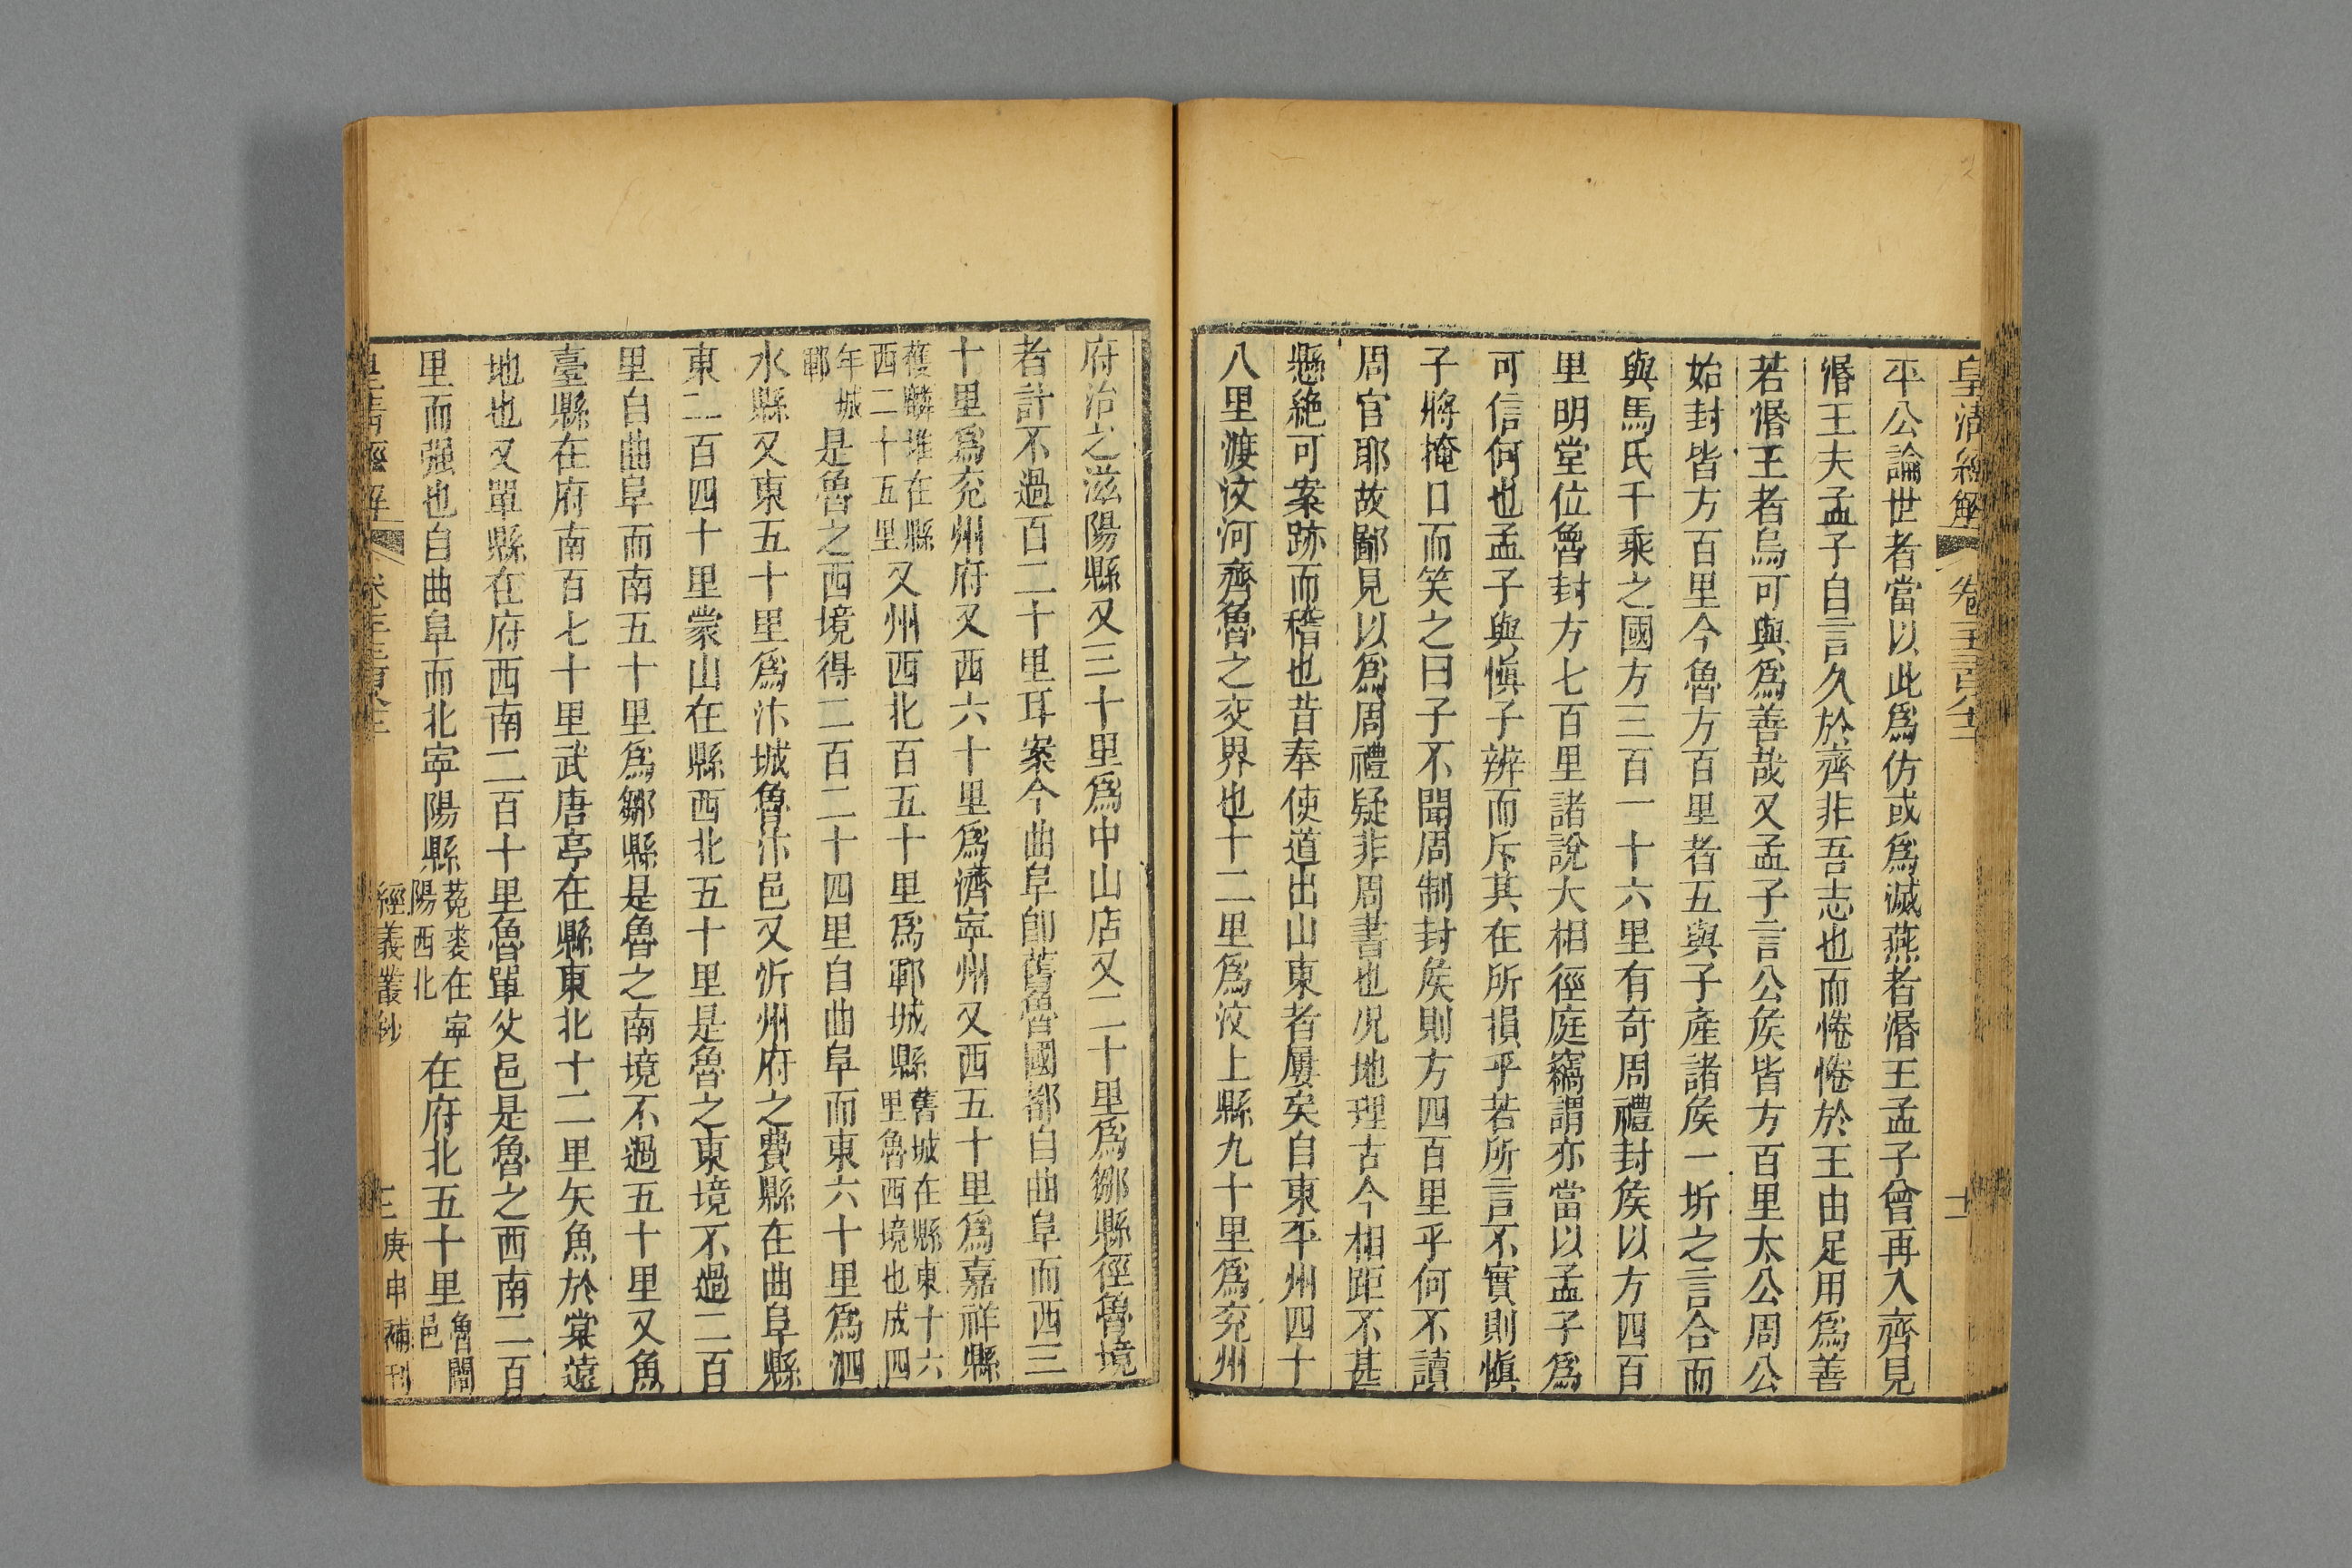 皇清經解 卷
平公論世者當以此爲仿或爲滅燕者湣王孟子曾再入齊見
湣王夫孟子自言久於齊非吾志也而惓惓於王由足用爲善
若湣王者烏可與爲善哉又孟子言公矦皆方百里太公周公
始封皆方百里今魯方百里者五與子產諸矦一圻之言合而
與馬氏千乘之國方三百一十六里有奇周禮封矦以方四百
里明堂位魯封方七百里諸說大相徑庭竊謂亦當以孟子爲
可信何也孟子與愼子辨而斥其在所損乎若所言不實則愼
子將掩口而笑之曰子不聞周制封矦則方四百里乎何不讀
周官耶故鄙見以爲周禮疑非周書也况地理古今相距不甚
懸絶可案跡而稽也昔奉使道出山東者屢矣自東平州四十
八里渡汶河齊魯之交界也十二里爲汶上縣九十里爲兖州
府治之滋陽縣又三十里爲中山店又二十里爲鄒縣徑魯境
者計不過百二十里耳案今曲阜卽舊魯國都自曲阜而西三
十里爲兖州府又西六十里爲濟寧州又西五十里爲嘉祥縣
獲麟堆在縣
西二十五里又州西北百五十里爲鄆城縣舊城在縣東十六
里魯西境也成四
年城
鄆是魯之西境得二百二十四里自曲阜而東六十里爲泗
水縣又東五十里爲汴城魯汴邑又沂州府之費縣在曲阜縣
東二百四十里蒙山在縣西北五十里是魯之東境不過二百
里自曲阜而南五十里爲鄒縣是魯之南境不過五十里又魚
臺縣在府南百七十里武唐亭在縣東北十二里矢魚於棠遠
地也又單縣在府西南二百十里魯單父邑是魯之西南二百
里而强也自曲阜而北寧陽縣菟裘在寧
陽西北在府北五十里魯闡
邑
皇清經解 經義叢鈔 庚申補刊